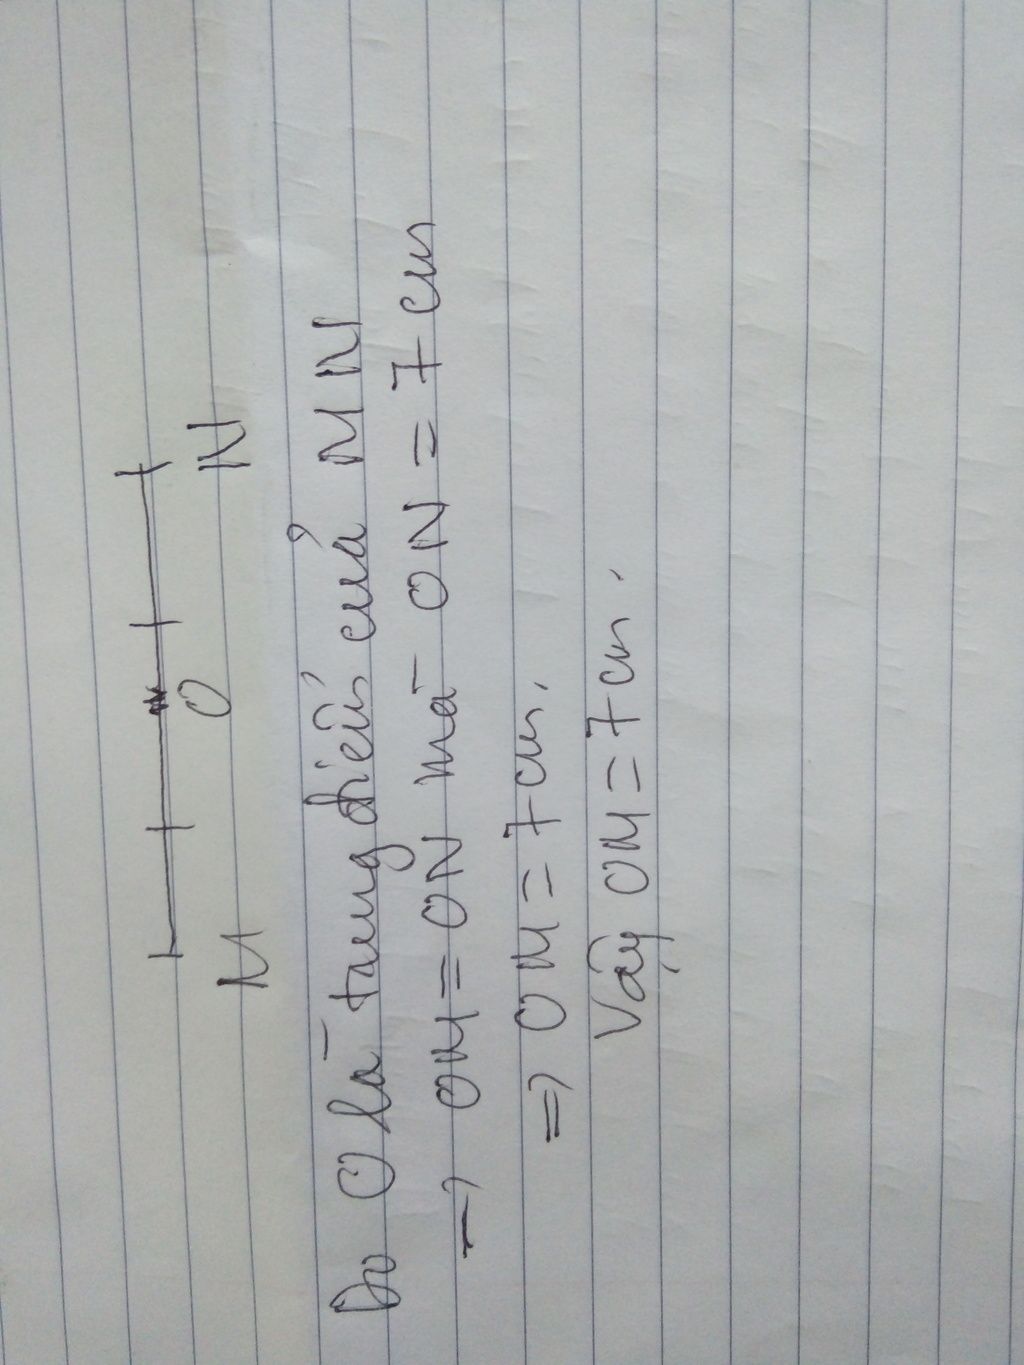 M O N
Do O là trung điểm của MN
=> OM = ON mà ON = 7 cm
=> OM = 7 cm.
Vậy OM = 7 cm.